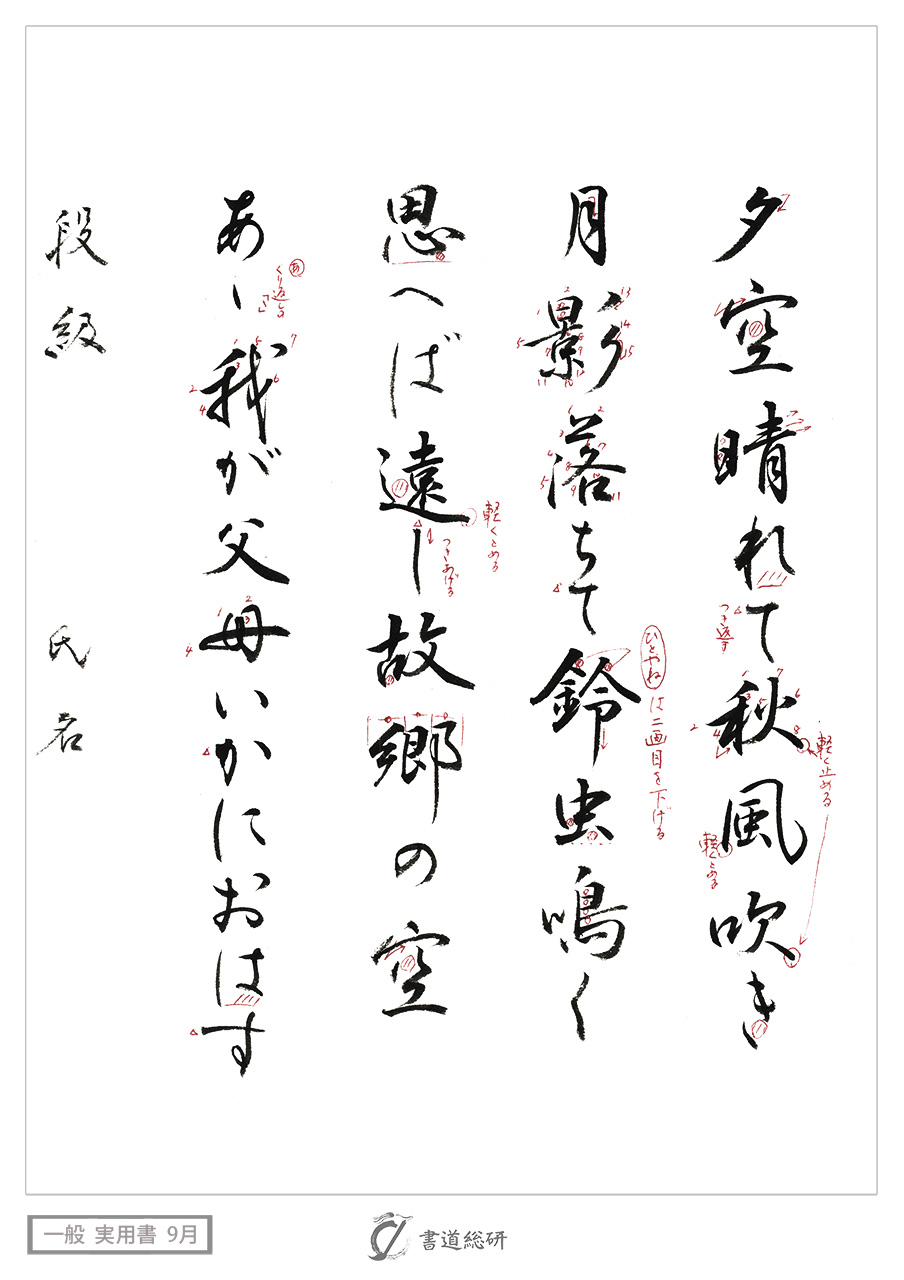 夕空晴れて秋風吹き
月影落ちて鈴虫鳴く
思へば遠し故郷の空
あゝ我が父母いかにおはす
段級 氏名
軽く止める
軽くとめる
つき返す
ひとやねは二画目を下げる
軽くとめる
つきあげる
あ くり返しる
一般 実用書 9月
書道総研